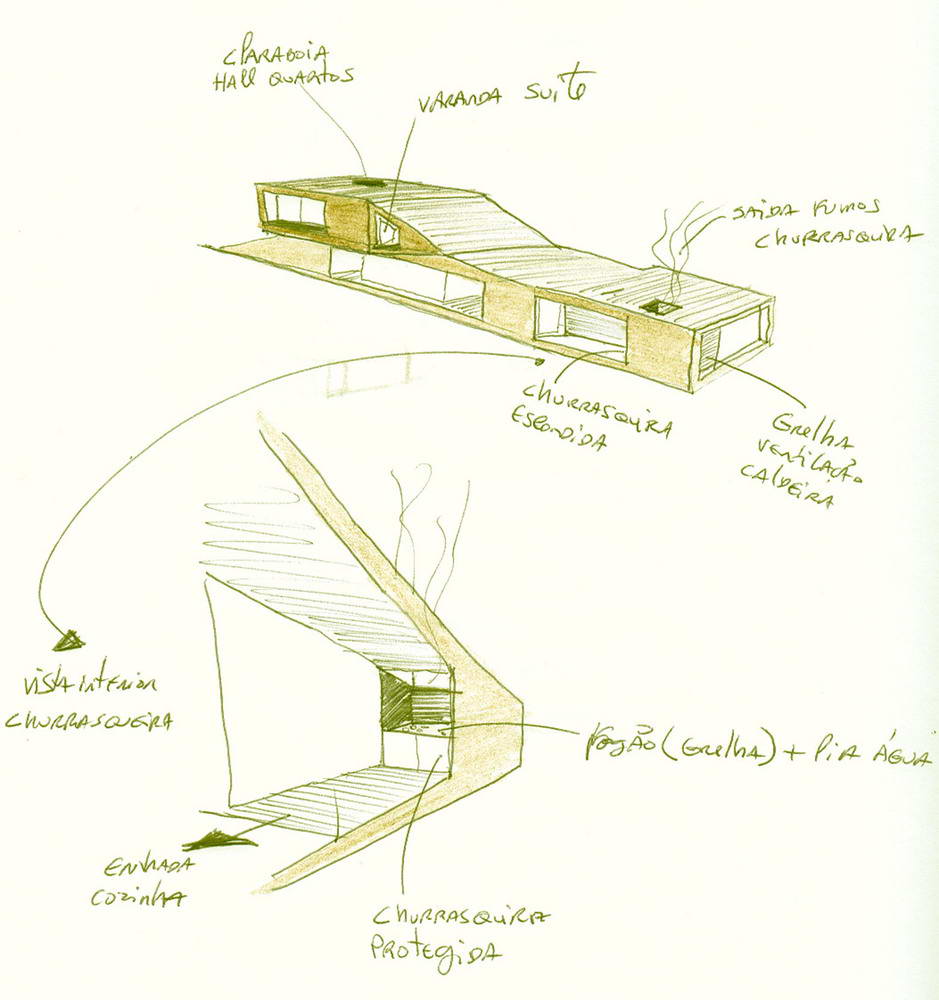 CLARABOIA
HALL QUARTOS
VARANDA SUITE
SAIDA FUMOS
CHURRASQUIRA
CHURRASQUIRA
ESCONDIDA
GRELHA
VENTILAÇÃO
CALDEIRA
VISTA INTERIOR
CHURRASQUEIRA
FOGÃO (GRELHA) + PIA ÁGUA
ENTRADA
COZINHA
CHURRASQUIRA
PROTEGIDA